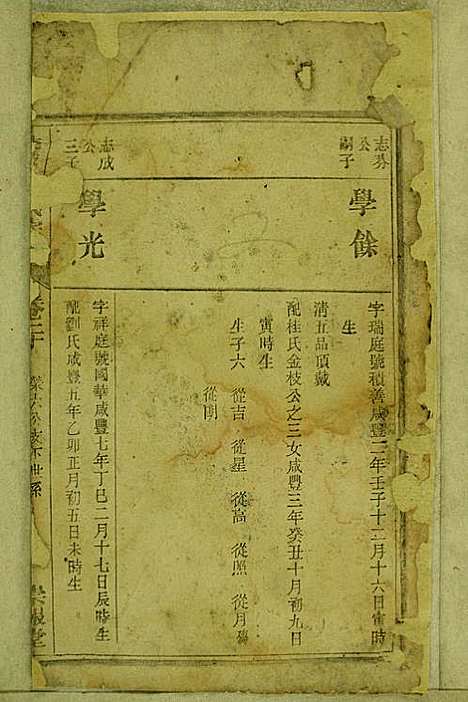 志募公
嗣子
學餘
字瑞庭號積善咸豐二年壬子十二月十六日寅時
生
清五品頂戴
配桂氏金枝公之三女咸豐三年癸丑十月初九日
寅時生
生子六 從吉 從星 從高 從照 從月
從明
志成公
三子
學光
字祥庭號國華咸豐七年丁巳二月十七日辰時生
配劉氏咸豐五年乙卯正月初五日未時生
卷二十